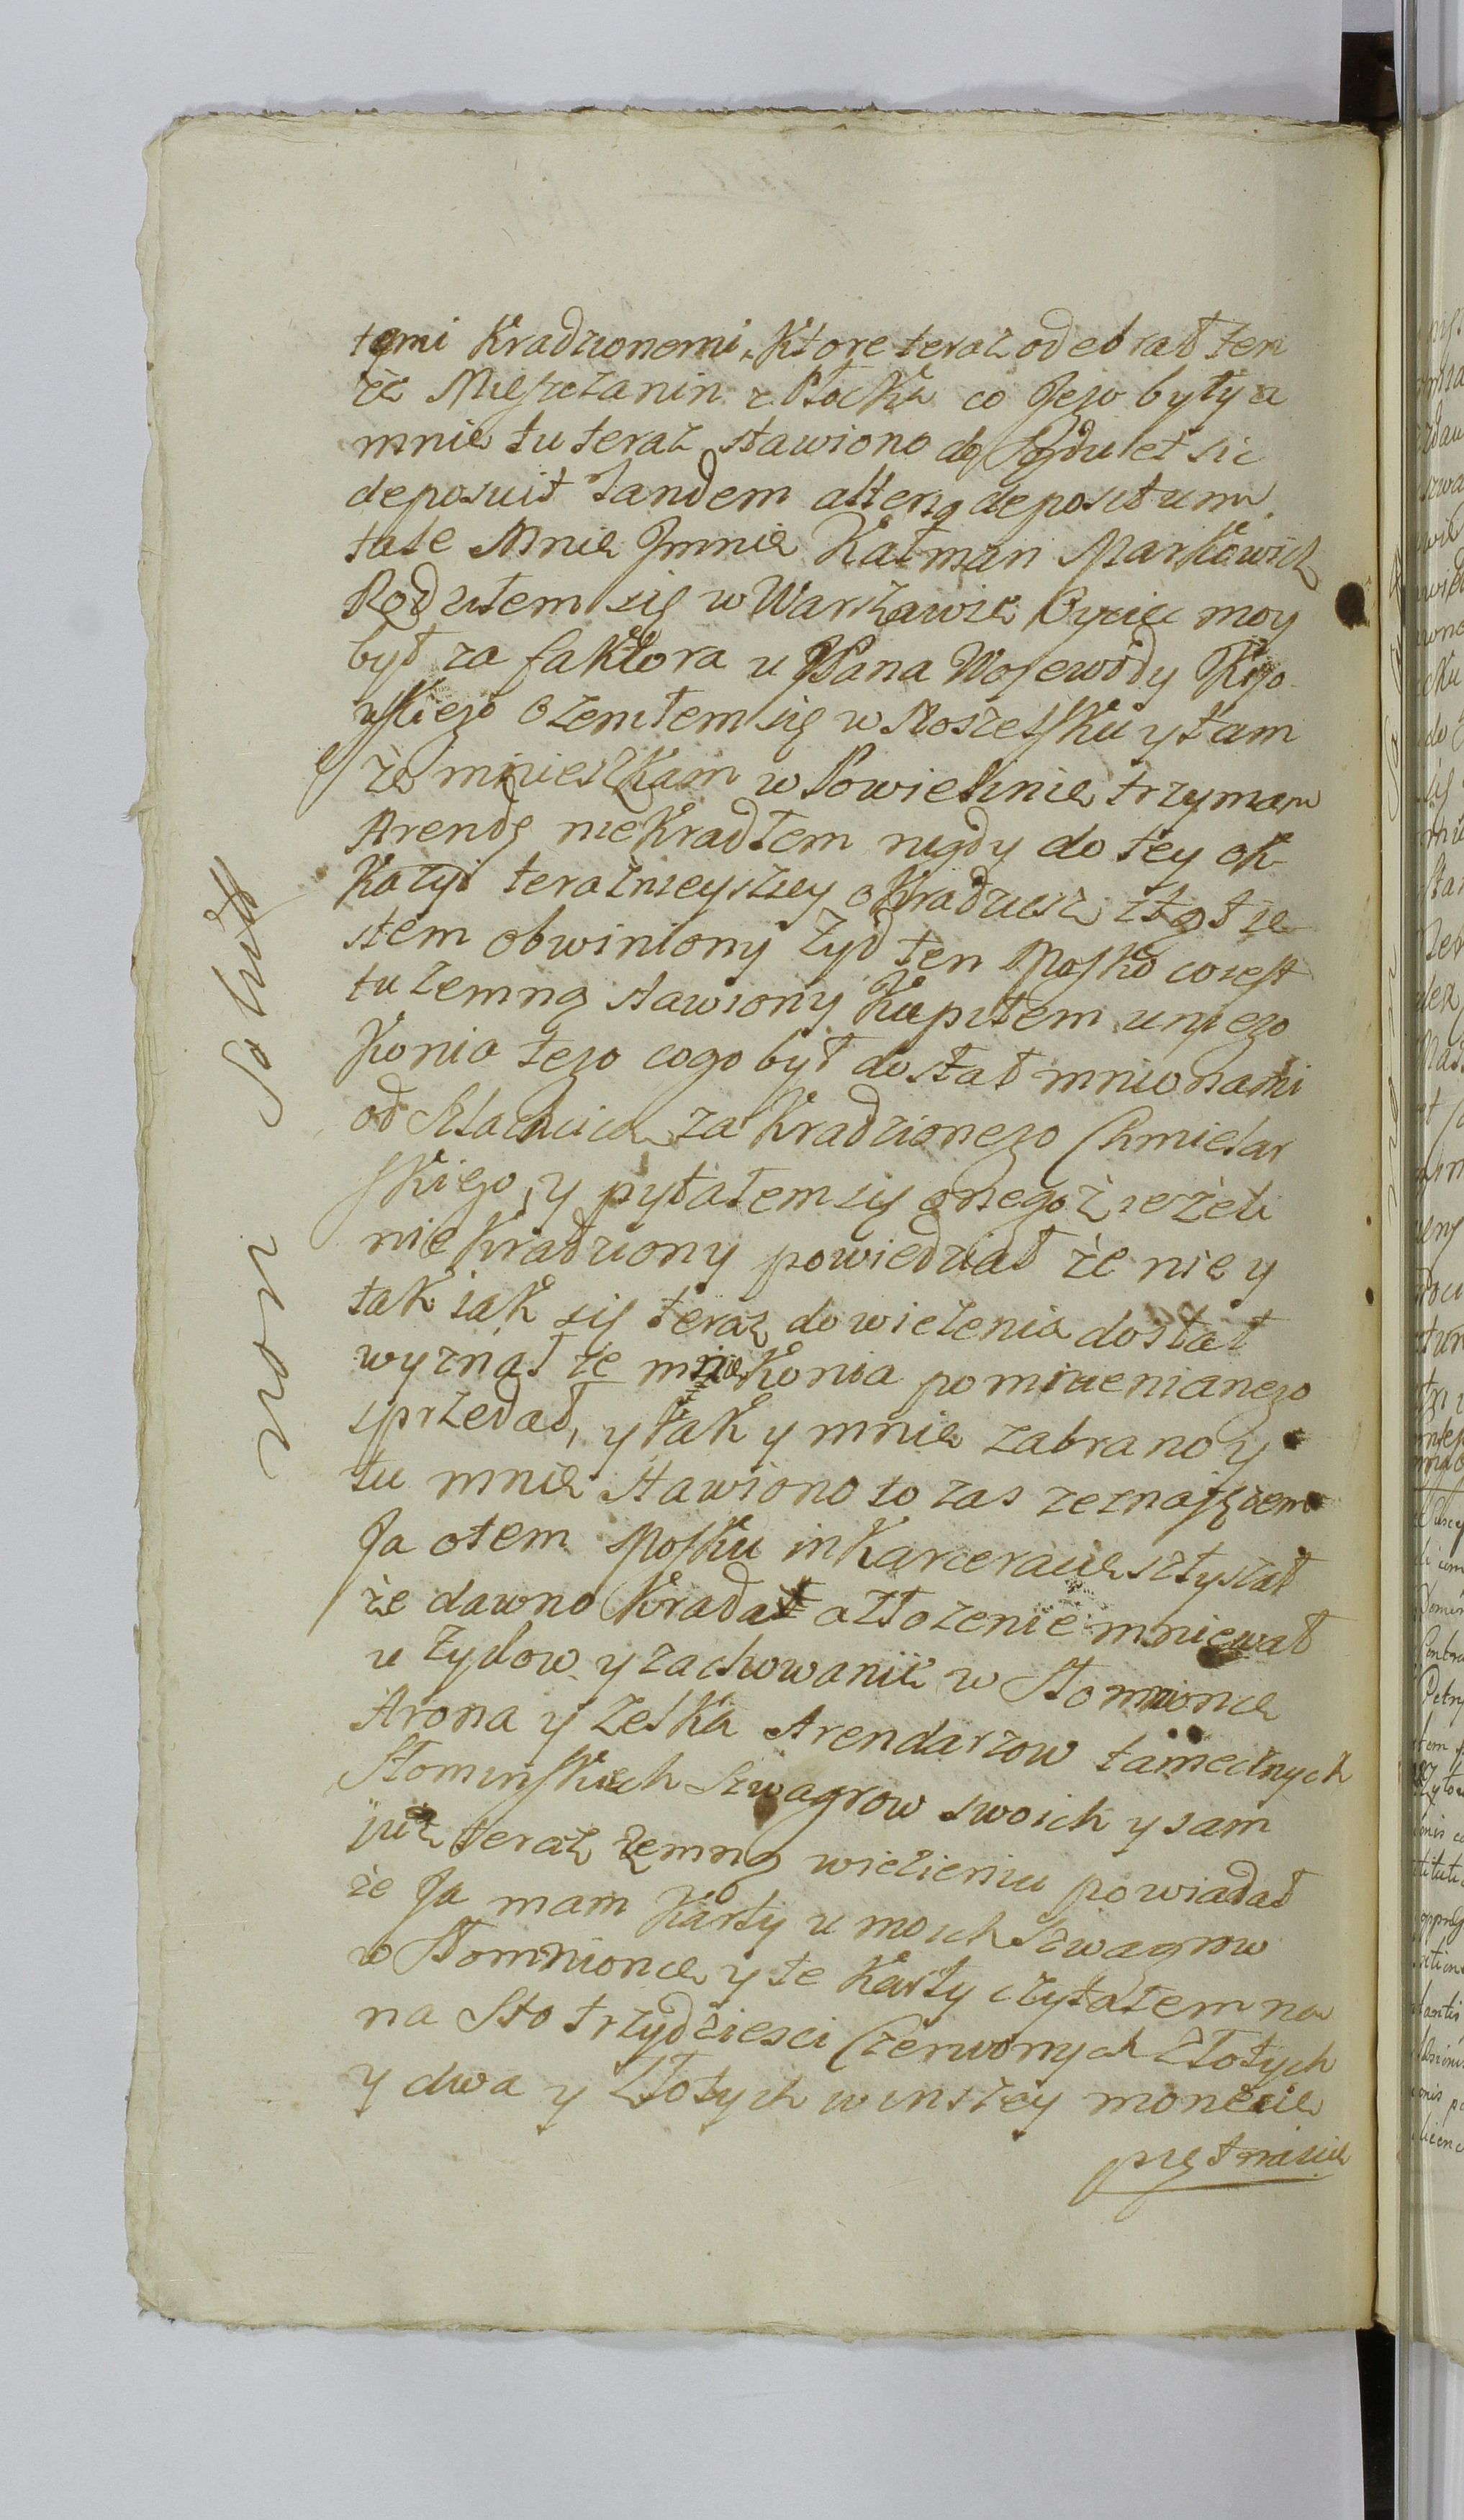 temi Kradzionemi, Ktore teraz odebrał ten
że Mieszczanin z Płocka co Jego były a
mnie tu teraz stawiono do Sądu et sic
deposuit Tandem alterq depositum
tale Mnie Jmnie Kalman Markowicz
Rodziłem się w Warszawie Oyciec moy
był za faktora u Pana Wojewody Kijo
wskiego Ożeniłem się w Noszelsku y tam
że mnieszkam w Powielinie trzymam
Arendę niekradłem nigdy do tey ok
kazyi teraznieyszey o Kradziesz ztąd ie
stem obwiniony Żyd ten Moszko co iest
tu zemną stawiony Kupiłem u niego
Konia tego co go był dostał mnionami
od Szlachcica za Kradzionego Chmielar
skiego, y pytałem się onegoż ieżeli
nie Kradziony powiedział że nie y
tak iak się teraz do wiezenia dostał
wyznał że mnie Konia pomnienianego
sprzedał, y tak y mnie zabrano y
tu mnie stawiono to zas zeznaję iem
Ja o tem Moszku in Karceracie sztyszał
że dawno Kradał a złozenie mniewał
u Żydow y zachowanie w Słomnionce
Arona y Zelka Arendarzow tamecznych
Słominskich Szwagrow swoich y sam
już teraz zemną wiezieniu powiadał
że Ja mam Karty u moich Szwagrow
w Słomnionce y te Karty czytałem na
na Sto trzydziesci Czerwonych Złotych
y dwa y Złotych w inszey monecie
piętnascie
non Solvit